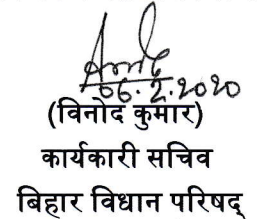 06.2.2020
(विनोद कुमार)
कार्यकारी सचिव
बिहार विधान परिषद्